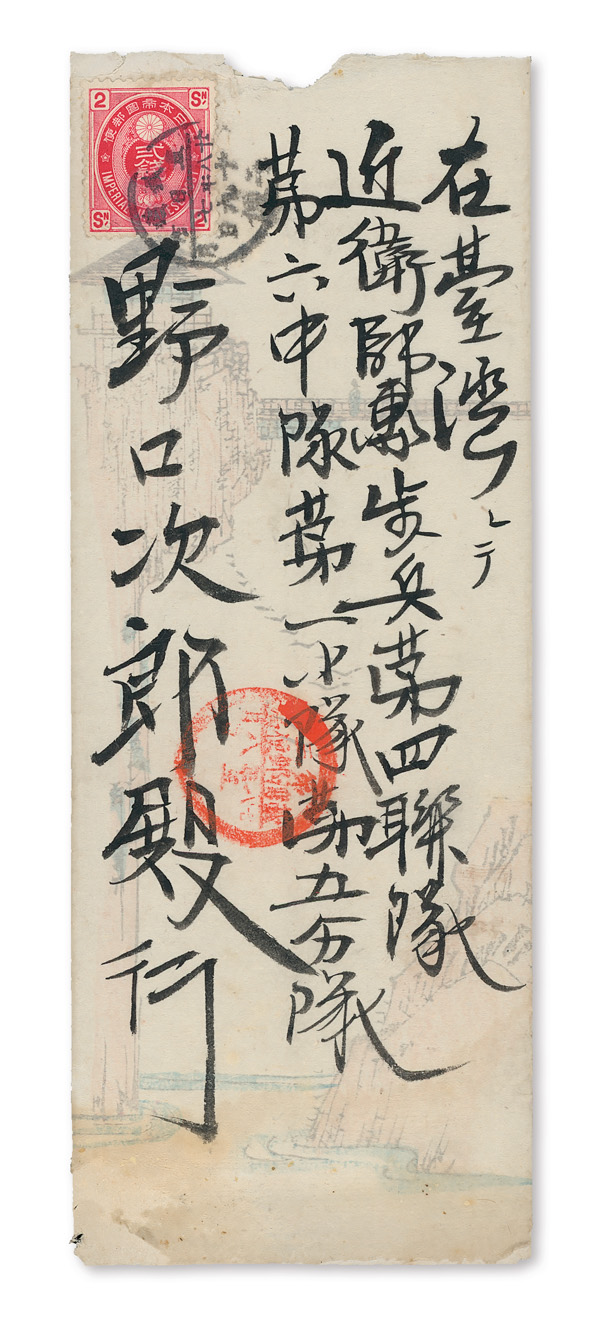 在臺灣ニテ
近衛師團歩兵第四聯隊
第六中隊第一小隊第五分隊
野口次郎殿行
2 SN
大日本帝國郵便
貳錢
IMPERIAL
SN 2